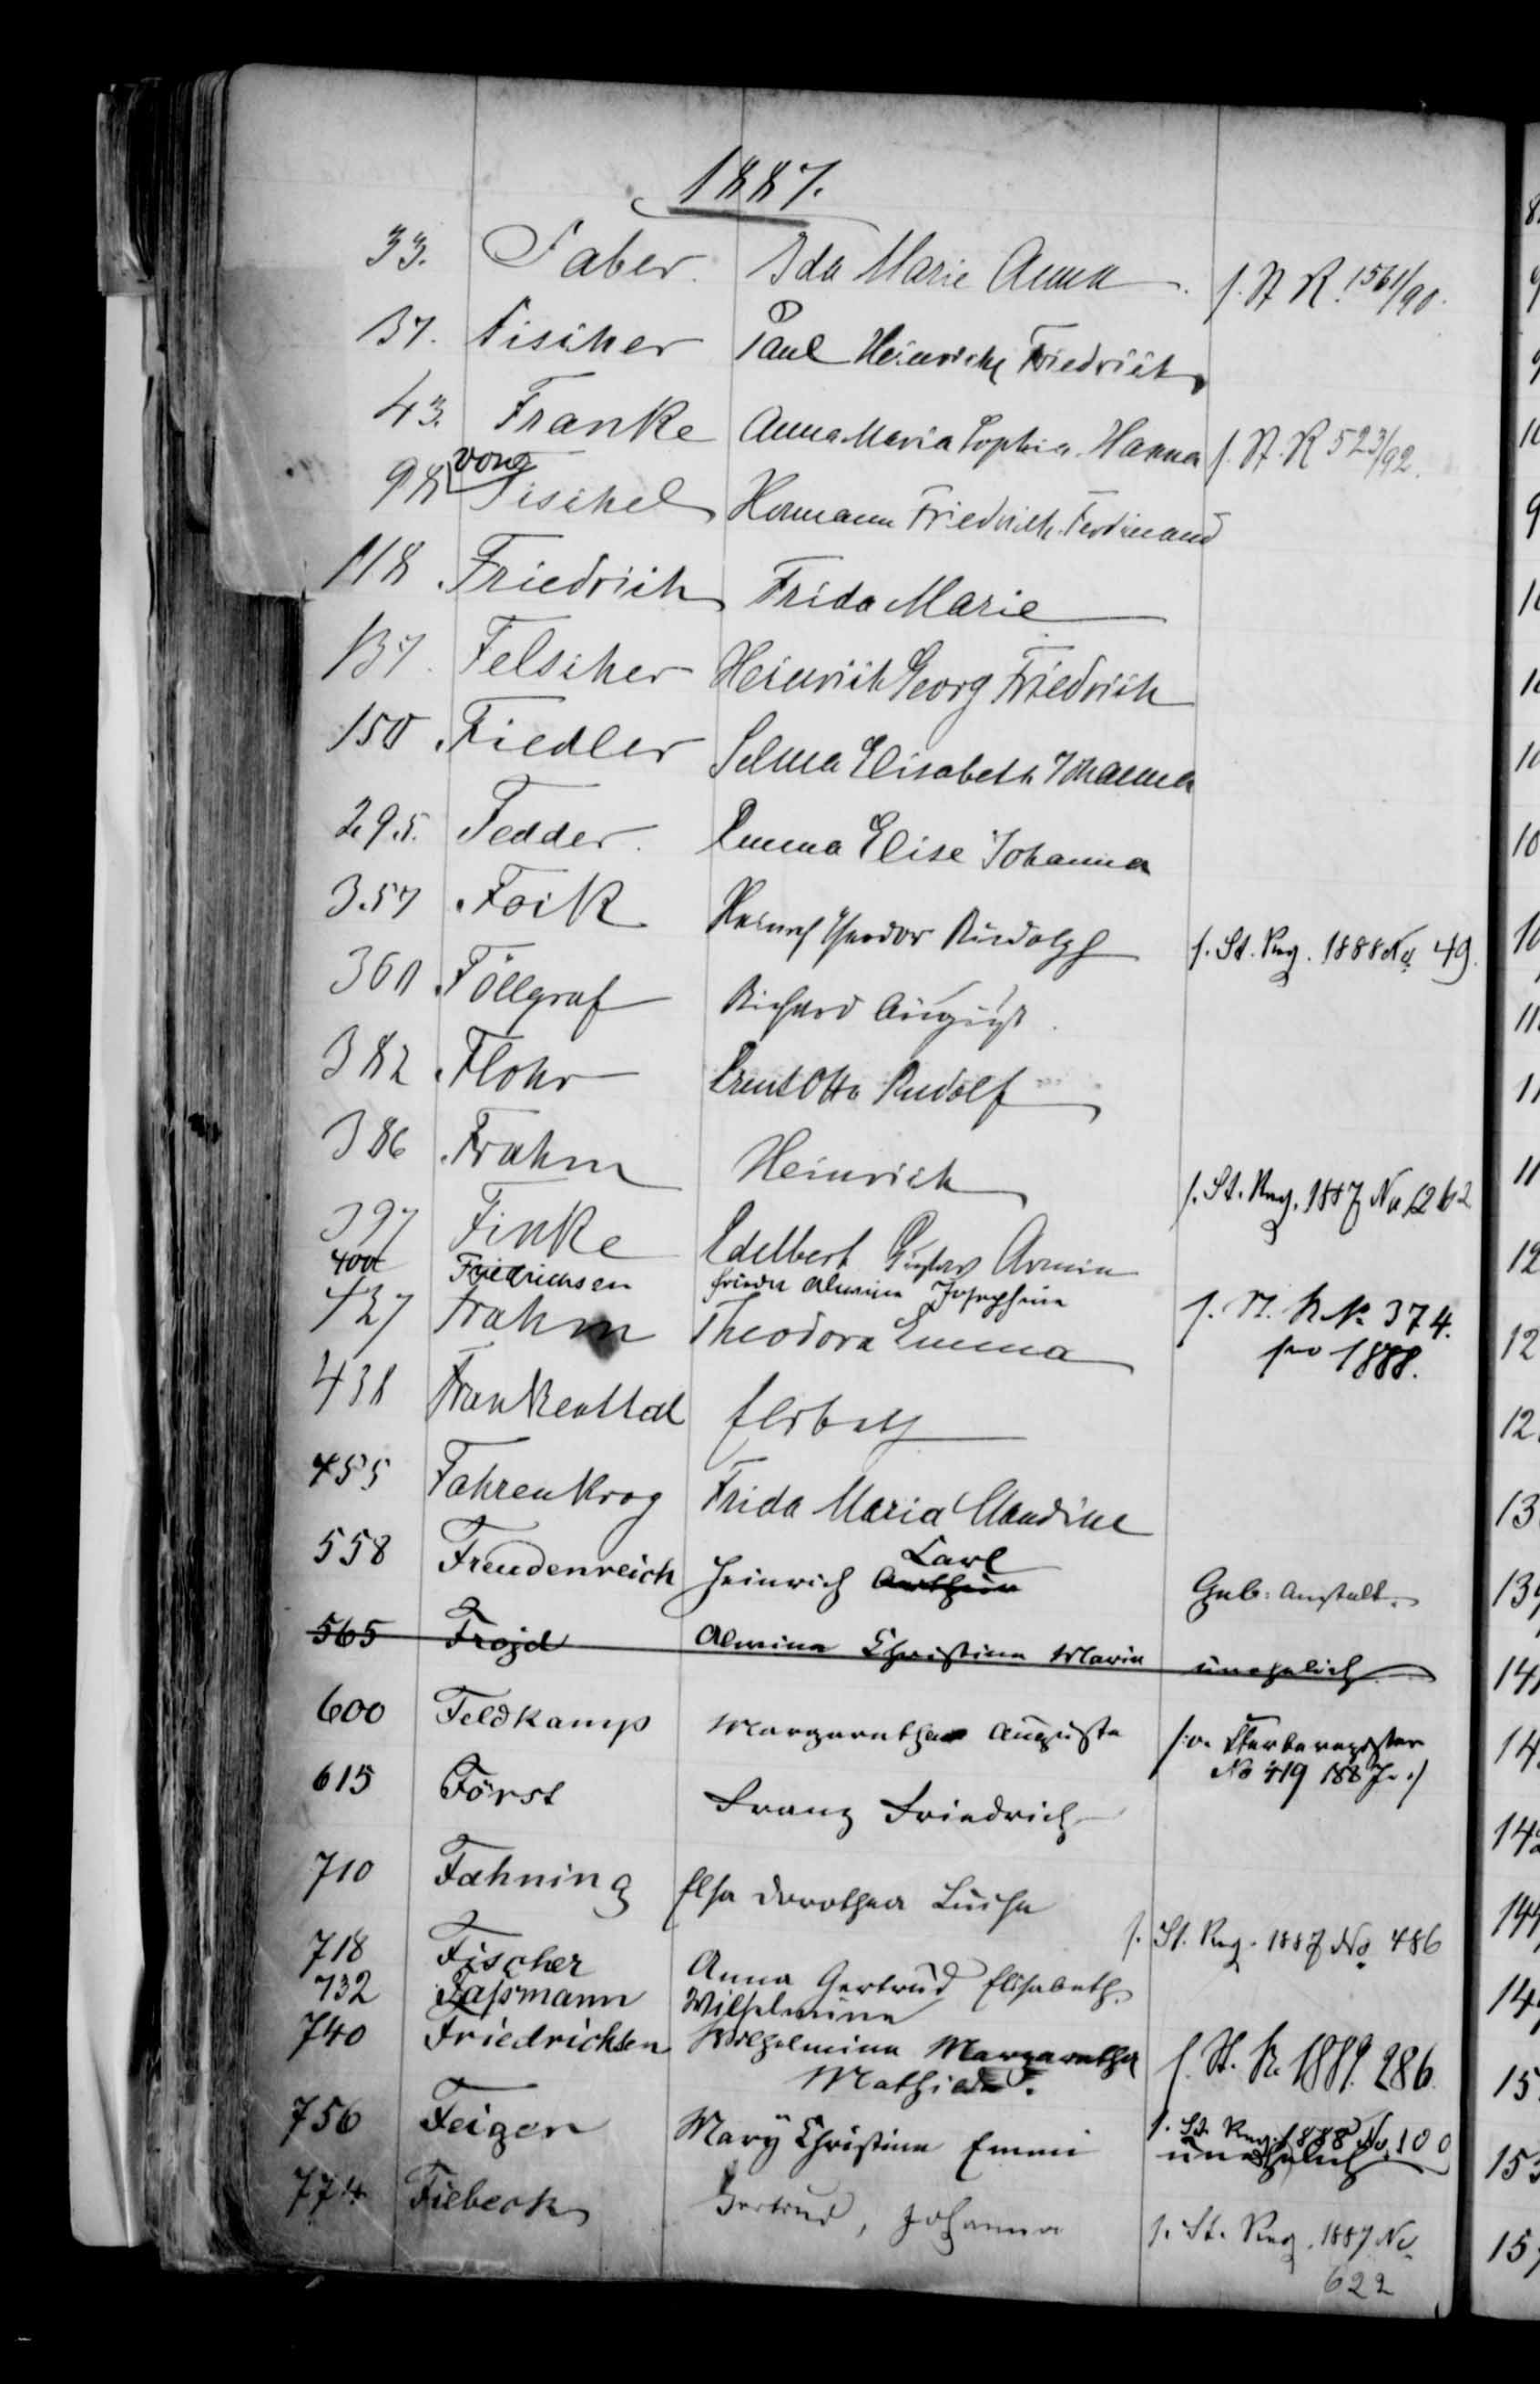 1887.
33. Faber. Ida Marie Anna. s. St. R. 1561/90.
37. Fischer Paul Heinrich Friedrich
43. Franke Anna Maria Sophia Hanna s. St. R 523/92.
98 von Fischel Hermann Friedrich Ferdinand
118. Friedrich Frida Marie
137. Felscher Heinrich Georg Friedrich
150. Fiedler Selma Elisabeth Johanna
295. Fedder. Emma Elise Johanna
357. Foik Theodor Rudolph s. St. Reg. 1888 No 49.
360. Föllgraf Richard August.
382. Flohr Ernst Otto Rudolf
386. Frahm Heinrich s. St. Reg. 1887 No 1262
397 Finke Edelbert Gustav Armin
400 Friedrichsen Frieda Alwine Josephine
427 Frahm Theodora Emma s. St. R. No 374.
pro 1888.
438 Frankenthal Elsbeth
455 Fahrenkrog Frida Maria Claudine
558 Freudenreich Heinrich Arthur Carl Geb. Anstalt.
565 Frojd Alwine Christina Maria unehelich
600 Feldkamp Margaretha Auguste Sterberegister
No 419 1887.
615 Först Franz Friedrich
710 Fahning Elsa Dorothea Luise
s. St. Reg. 1887 No 486
718 Fischer Anna Gertrud Elisabeth.
732 Faßmann Wilhelmine
740 Friedrichsen Wilhelmina Margaretha s. St. R. 1889. 286.
Mathilde.
756 Feigen Mary Christine Emmi s. St. Reg. 1888 No. 100
unehelich
774 Fiebeck Gertrud, Johanna s. St. Reg. 1887 No
622